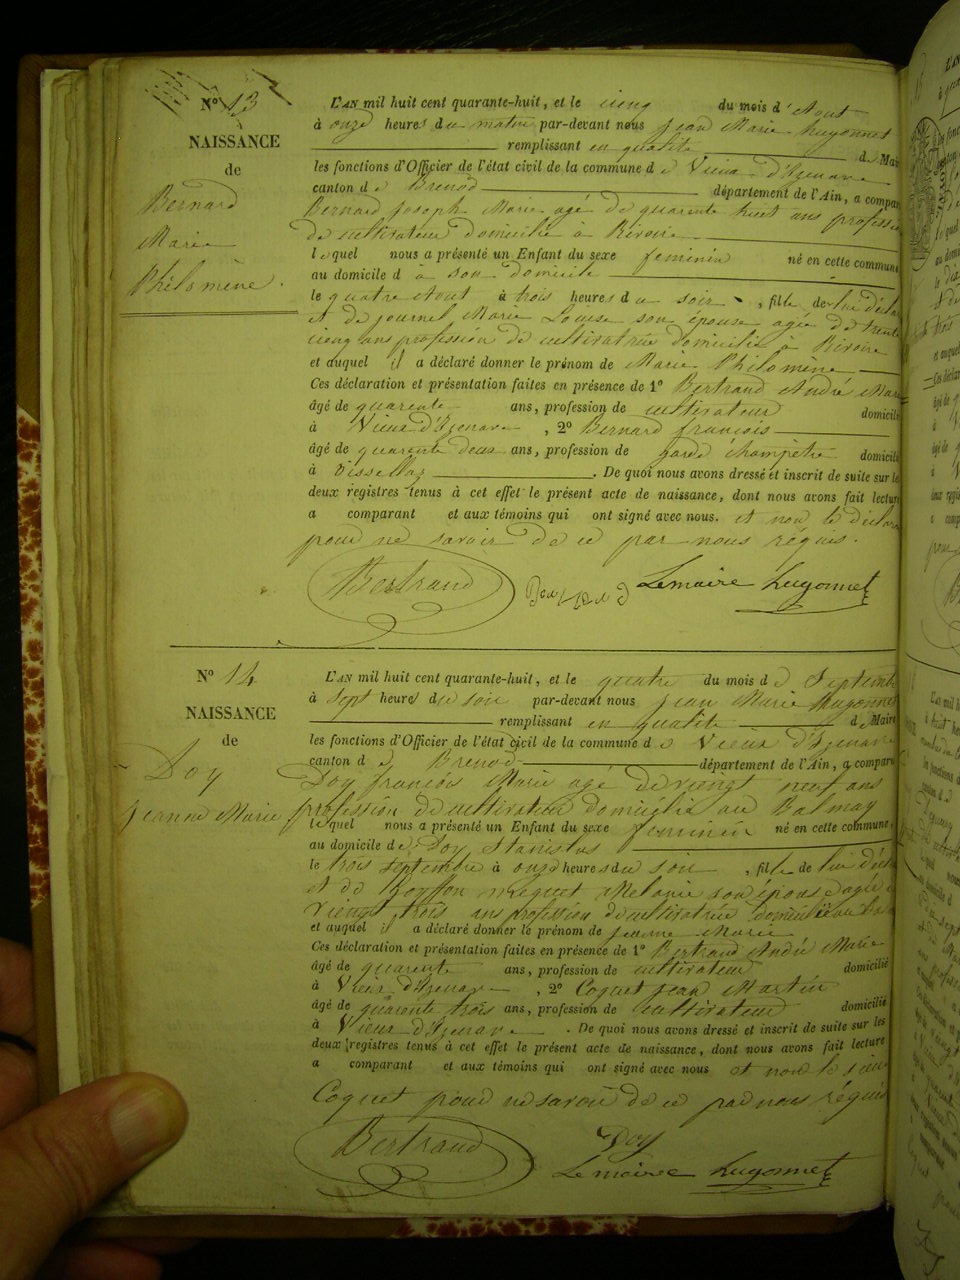 N° 13
NAISSANCE
de
Bernard
Marie
Philomène.
L'AN mil huit cent quarante-huit, et le cienq du mois d'Aout
à onze heures du matin par-devant nous Jean Marie Hugonnet
remplissant en qualité de Mai
les fonctions d'Officier de l'état civil de la commune de Vieux d'Izenave
canton de Brenod département de l'Ain, a compar
Bernard Joseph Marie agé de quarente huit ans professi
de cultivateur domicilié à Rivoire
lequel nous a présenté un Enfant du sexe feminin né en cette commune
au domicile d à son domicile
le quatre Aout à trois heures du soir, fille de lui décla
et de Journel Marie Louise son épouse agée de trente
cienq ans profession de cultivatrice domicilié à Rivoire
et auquel il a déclaré donner le prénom de Marie Philomène
Ces déclaration et présentation faites en présence de 1° Bertrand André Marie
âgé de quarente ans, profession de cultivateur domicilié
à Vieux d'Izenave, 2° Bernard francois
âgé de quarente deux ans, profession de garde champètre domicilié
à Vissellaz. De quoi nous avons dressé et inscrit de suite sur le
deux registres tenus à cet effet le présent acte de naissance, dont nous avons fait lectur
a comparant et aux témoins qui ont signé avec nous. et non le déclara
pour ne savoir de ce par nous réquis.
Bertrand Bernard Lemaire Hugonnet
N° 14
NAISSANCE
de
Doy
Jeanne Marie
L'AN mil huit cent quarante-huit, et le quatre du mois de Septembre
à Sept heures du soir par-devant nous Jean Marie Hugonnet
remplissant en qualité de Maire
les fonctions d'Officier de l'état civil de la commune de Vieux d'Izenave
canton de Brenod département de l'Ain, a comparu
Doy francois Marie agé de vienGt neuf ans
profession de cultivateur domicilié au Balmay
lequel nous a présenté un Enfant du sexe feminin né en cette commune,
au domicile de Doy Stanislas
le trois septembre à onze heures du soir, fille de lui décla
et de Mélanie son épouse agée
vienGt trois ans profession de cultivatrice domiciliée au
et auquel il a déclaré donner le prénom de jeanne Marie
Ces déclaration et présentation faites en présence de 1° Bertrand André Marie
âgé de quarente ans, profession de cultivateur domicilié
à Vieux d'Izenave, 2° Coquet Jean Martin
âgé de quarente trois ans, profession de cultivateur domicilié
à Vieux d'Izenave. De quoi nous avons dressé et inscrit de suite sur les
deux registres tenus à cet effet le présent acte de naissance, dont nous avons fait lecture
a comparant et aux témoins qui ont signé avec nous et non le sieur
Coquet pour ne savoir de ce par nous réquis
Bertrand Doy
Le maire Hugonnet